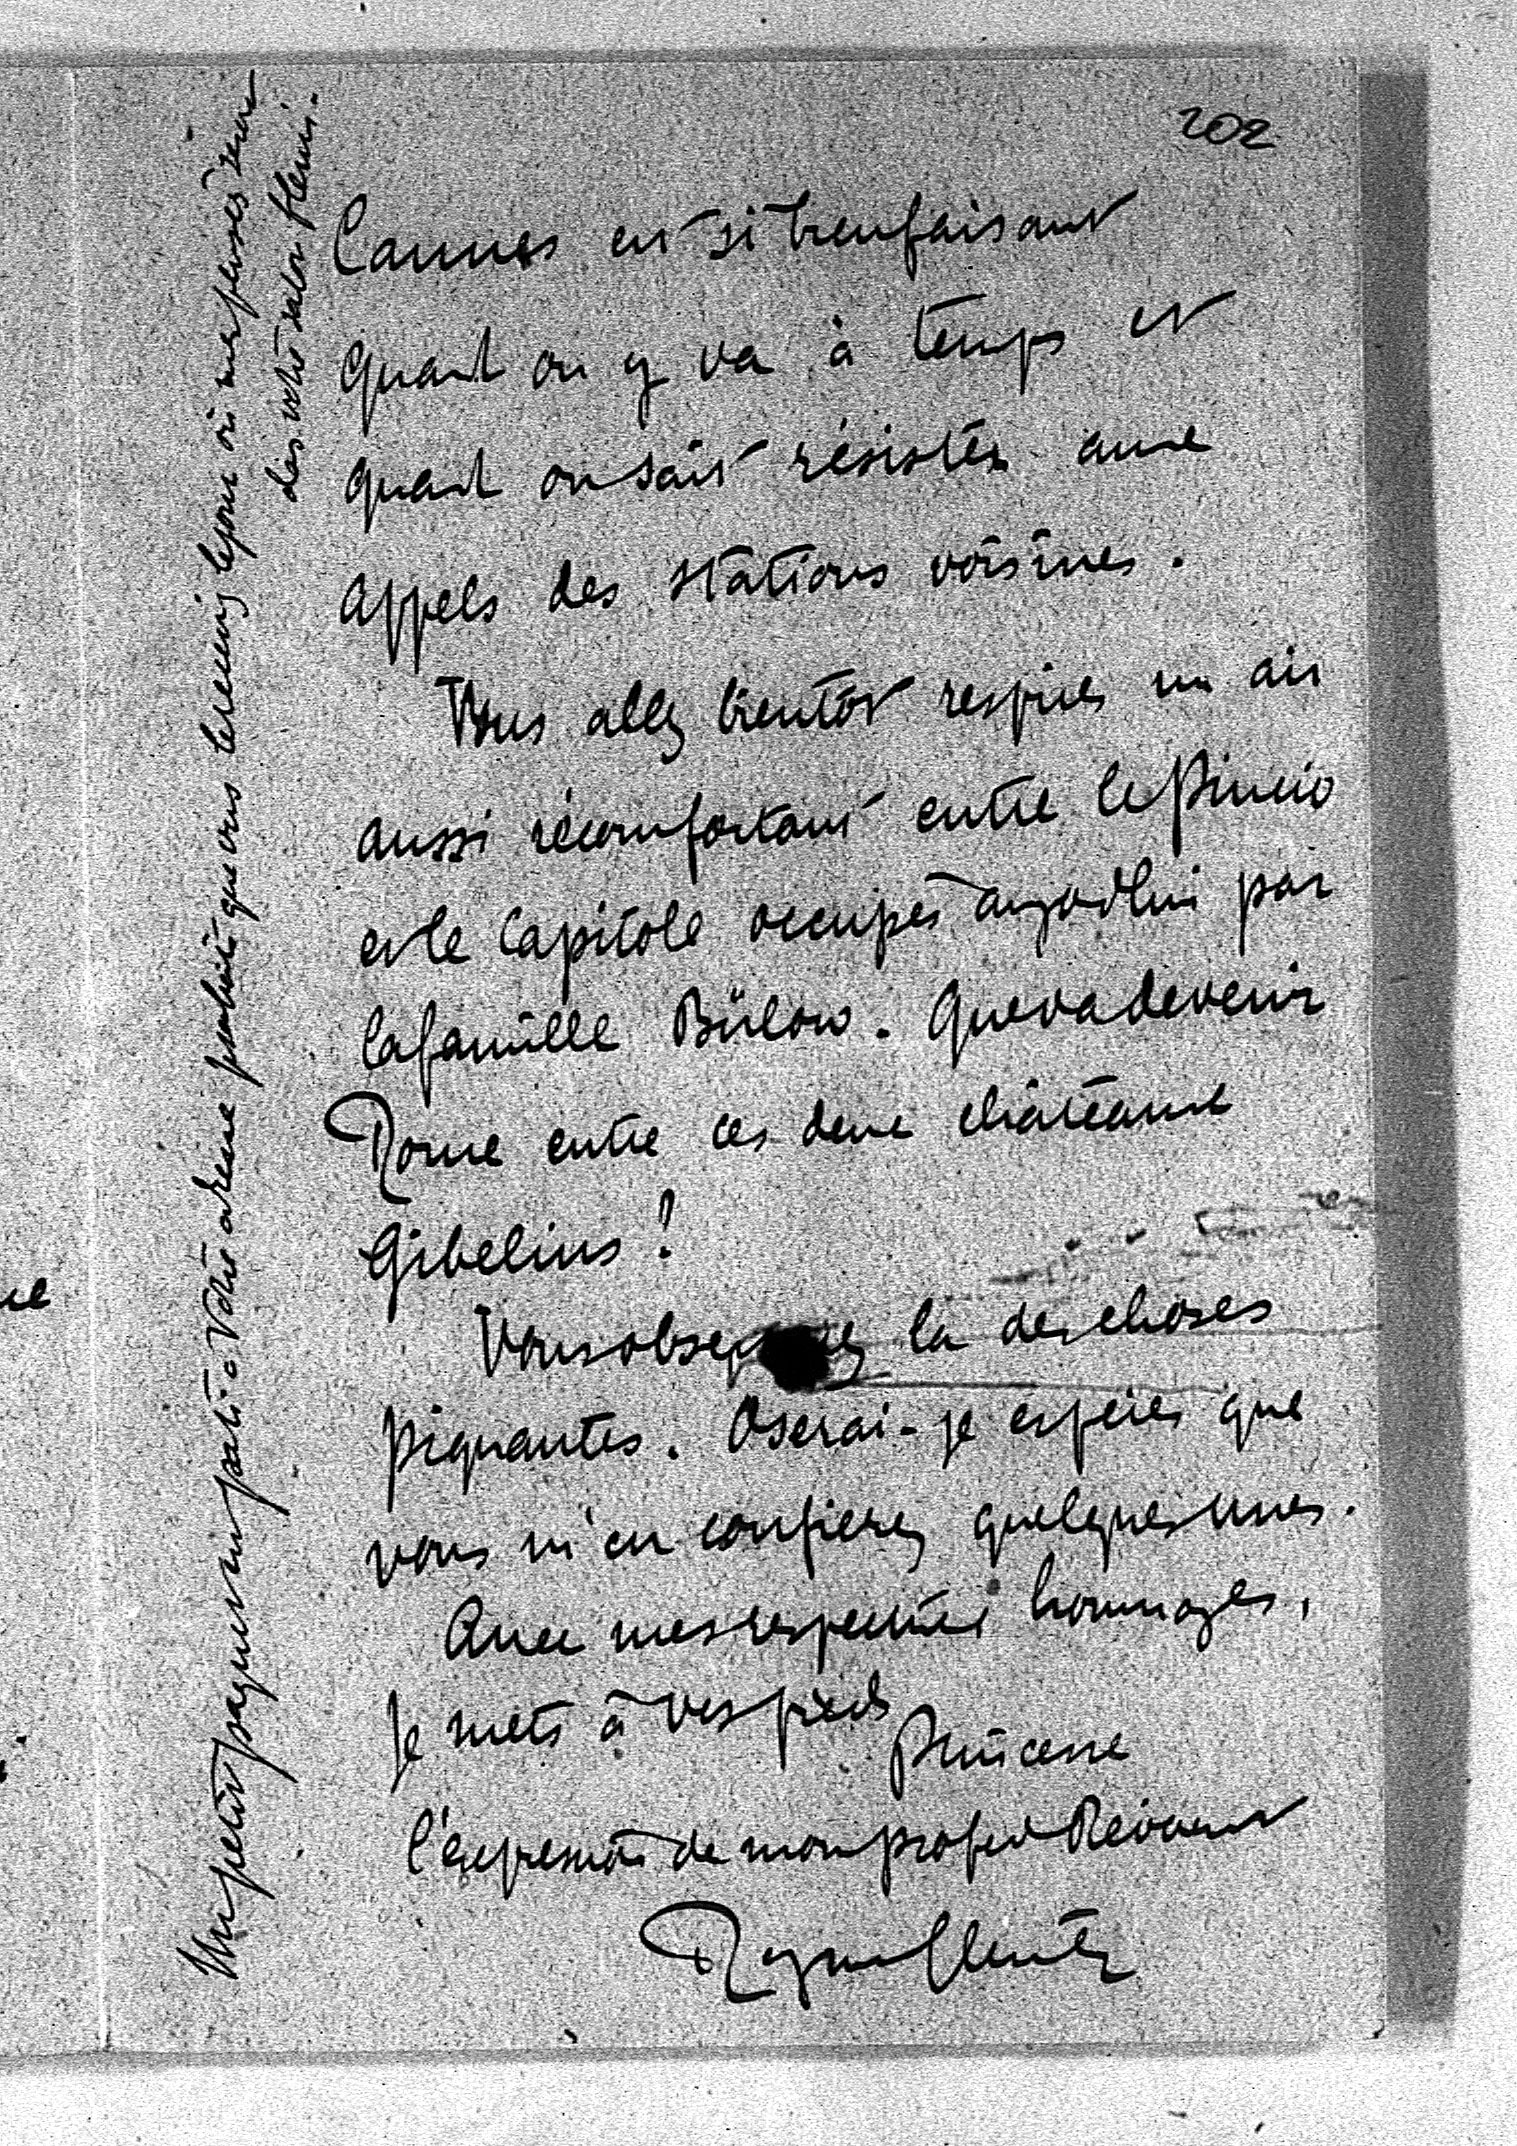 202
Cannes est si bienfaisant
quand on y va à temps et
quand on sait résister aux
appels des stations voisines.
Vous allez bientôt respirer un air
aussi réconfortant entre le Pincio
et le Capitole occupés aujourd'hui par
la famille Bülow. Que va devenir
Rome entre ces deux châteaux
Gibelins ?
Vous observerez là des choses
piquantes. Oserai-je espérer que
vous m'en confierez quelques unes.
Avec mes respectueux hommages,
je mets à vos pieds
Princesse
l'expression de mon profond
Un petit parti à votre que vous où mes pensées
dès votre salon fleuri.